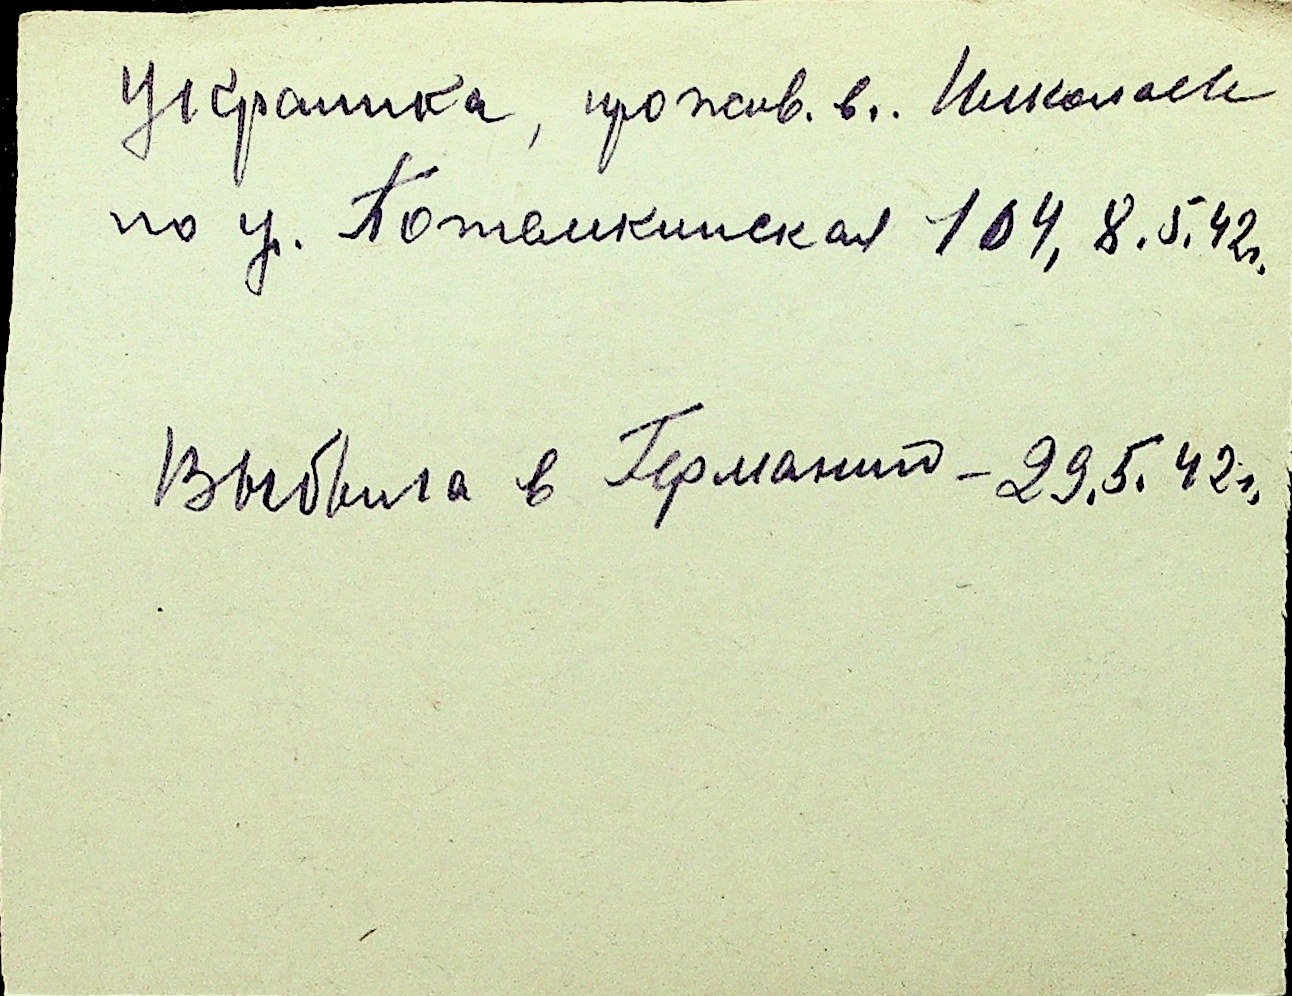 Украинка, прожив. в г. Николаеве
по ул. Потемкинская 104, 8.5.42г.
Выбыла в Германию - 29.5.42г.